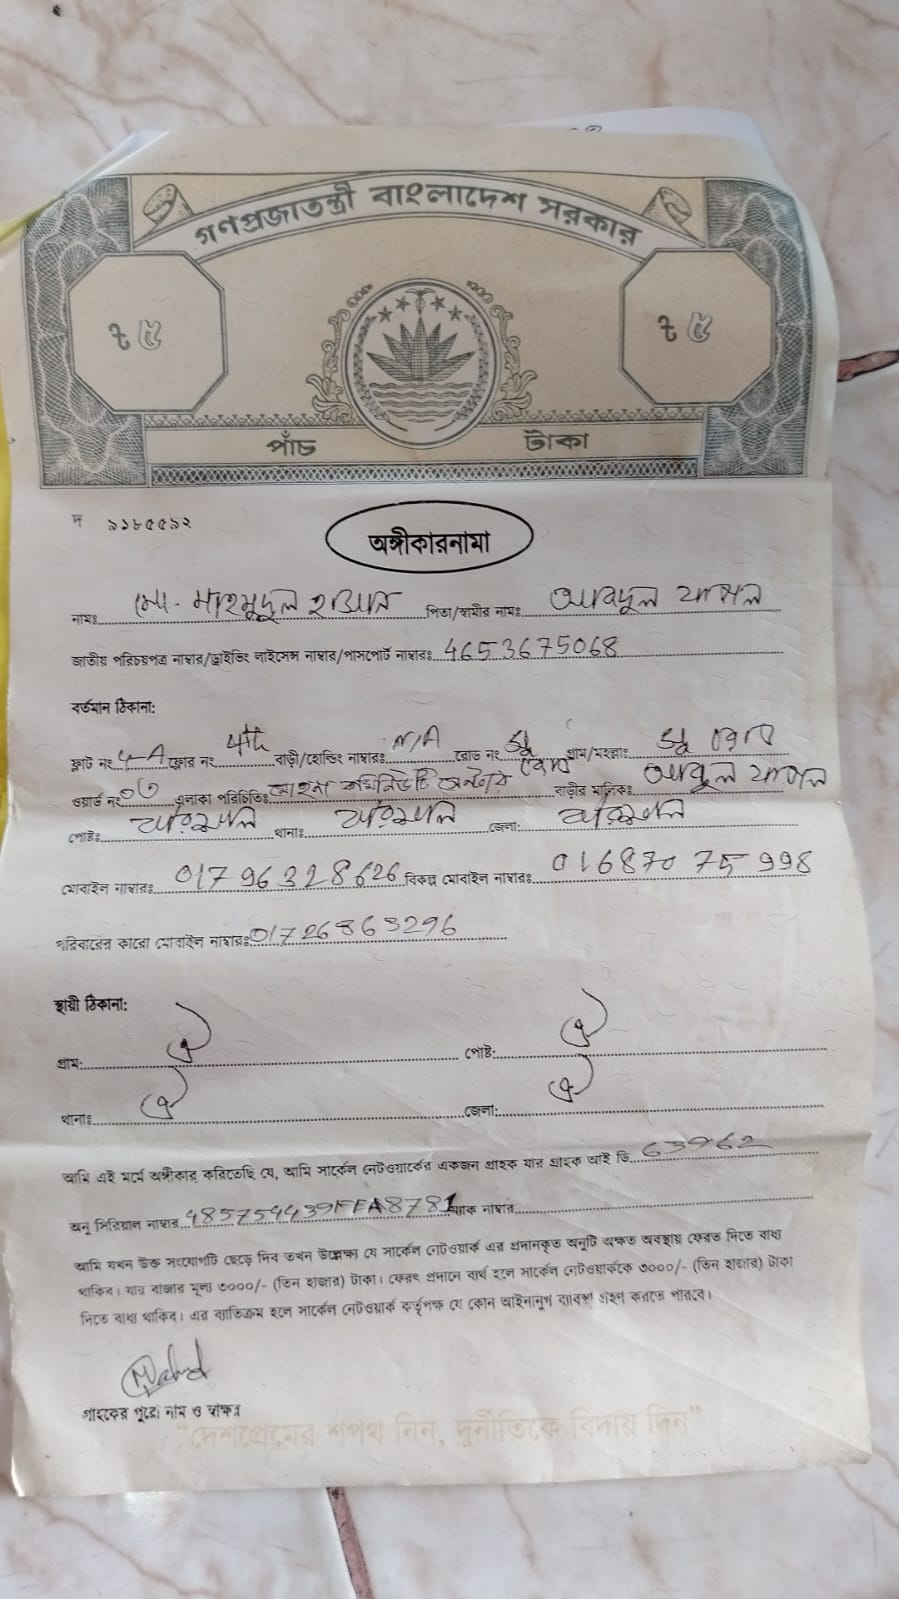 গণপ্রজাতন্ত্রী বাংলাদেশ সরকার
৳ ৫ ৳ ৫
পাঁচ টাকা
দ ৯১৮৫৫৯২
অঙ্গীকারনামা
নামঃ মো. মাহমুদুল হাসান পিতা/স্বামীর নামঃ আবদুল
জাতীয় পরিচয়পত্র নাম্বার/ড্রাইভিং লাইসেন্স নাম্বার/পাসপোর্ট নাম্বারঃ 4653675068
বর্তমান ঠিকানা:
ফ্লাট নং 4-A ফ্লোর নং 4th বাড়ী/হোল্ডিং নাম্বারঃ N/A রোড নং গ্রাম/মহল্লাঃ
ওয়ার্ড নং ০৩ এলাকা পরিচিতিঃ কমিনিউটি সেন্টার বাড়ীর মালিকঃ আবদুল
পোষ্টঃ থানাঃ জেলা:
মোবাইল নাম্বারঃ 01796328626 বিকল্প মোবাইল নাম্বারঃ 01687075998
পরিবারের কারো মোবাইল নাম্বারঃ 01726863296
স্থায়ী ঠিকানা:
গ্রাম: ঐ পোষ্ট: ঐ
থানাঃ ঐ জেলা: ঐ
আমি এই মর্মে অঙ্গীকার করিতেছি যে, আমি সার্কেল নেটওয়ার্কের একজন গ্রাহক যার গ্রাহক আই ডি 63962
অনু সিরিয়াল নাম্বার 485754439FFA8781 ম্যাক নাম্বার
আমি যখন উক্ত সংযোগটি ছেড়ে দিব তখন উল্লেক্ষ্য যে সার্কেল নেটওয়ার্ক এর প্রদানকৃত অনুটি অক্ষত অবস্থায় ফেরত দিতে বাধ্য
থাকিব। যার বাজার মূল্য ৩০০০/- (তিন হাজার) টাকা। ফেরৎ প্রদানে ব্যর্থ হলে সার্কেল নেটওয়ার্ককে ৩০০০/- (তিন হাজার) টাকা
দিতে বাধ্য থাকিব। এর ব্যাতিক্রম হলে সার্কেল নেটওয়ার্ক কর্তৃপক্ষ যে কোন আইনানুগ ব্যাবস্থা গ্রহণ করতে পারবে।
গ্রাহকের পুরো নাম ও স্বাক্ষর
"দেশপ্রেমের শপথ নিন, দুর্নীতিকে বিদায় দিন"